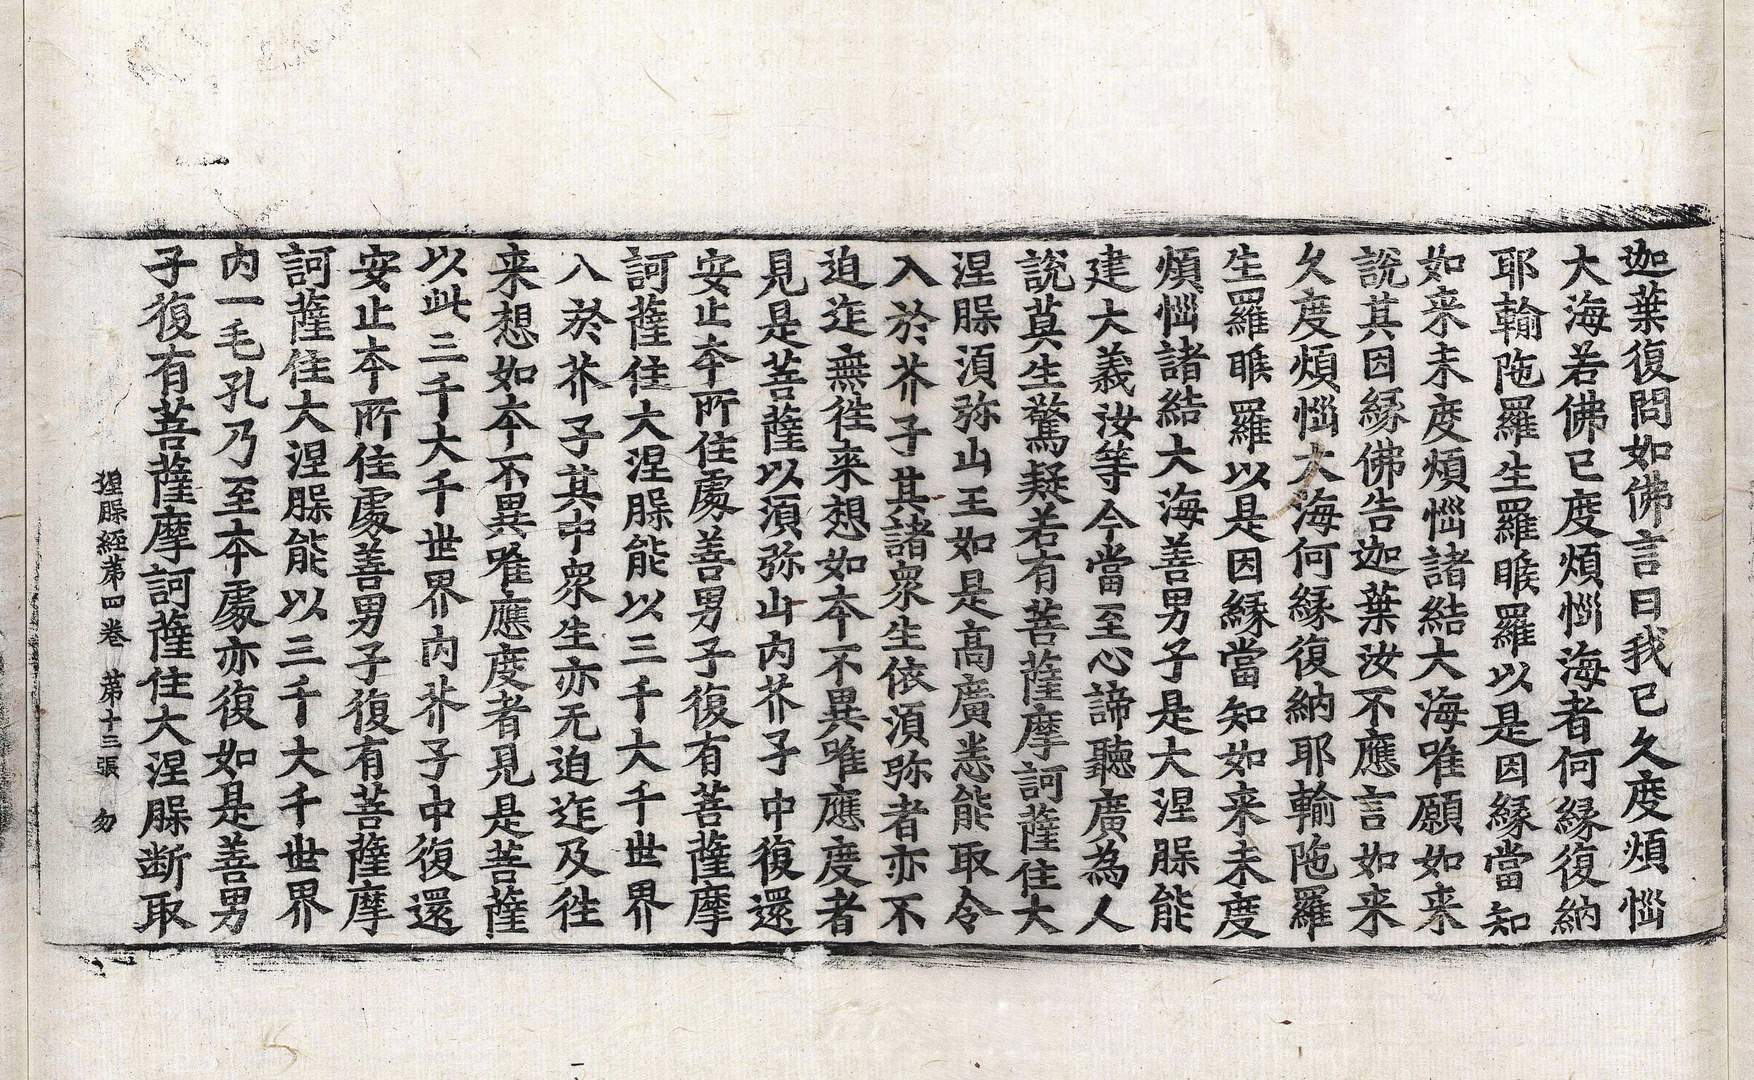 迦葉復問如佛言曰我已久度煩惱
大海若佛已度煩惱海者何緣復納
耶輸陁羅生羅睺羅以是因緣當知
如来未度煩惱諸結大海唯願如来
說其因緣佛告迦葉汝不應言如来
久度煩惱大海何緣復納耶輸陁羅
生羅睺羅以是因緣當知如来未度
煩惱諸結大海善男子是大涅槃能
建大義汝等今當至心諦聽廣為人
說莫生驚疑若有菩薩摩訶薩住大
涅槃湏弥山王如是高廣悉能取令
入於芥子其諸衆生依湏弥者亦不
迫迮無徃来想如本不異唯應度者
見是菩薩以湏弥山内芥子中復還
安止本所住處善男子復有菩薩摩
訶薩住大涅槃能以三千大千世界
入於芥子其中衆生亦无迫迮及徃
来想如本不異唯應度者見是菩薩
以此三千大千世界内芥子中復還
安止本所住處善男子復有菩薩摩
訶薩住大涅槃能以三千大千世界
内一毛孔乃至本處亦復如是善男
子復有菩薩摩訶薩住大涅槃断取
涅槃經第四卷 第十三張 勿